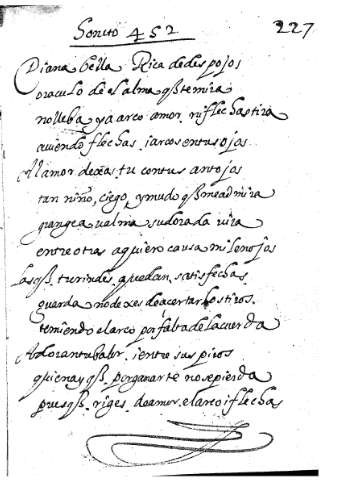 Soneto 452
227
Diana bella Rica de despojos
oraculo de el alma qe te mira
no lleba ya arco amor, ni flechas tira
auiendo flechas, i arcos en tus ojos
Al amor dexas tu con tus antojos
tan niño, ciego, y mudo qe me admira
grangea u alma su dorada uira
entre otras a quien causa mil enojos
Las qe tu rindes quedan satisfechas
guarda no dexes de acertar los tiros
temiendo el arco por falta de la cuerda
Adoran tu balor, i entre suspiros
qui en ay qe por ganarte no se pierda
pues qe riges de amor el arco i flechas